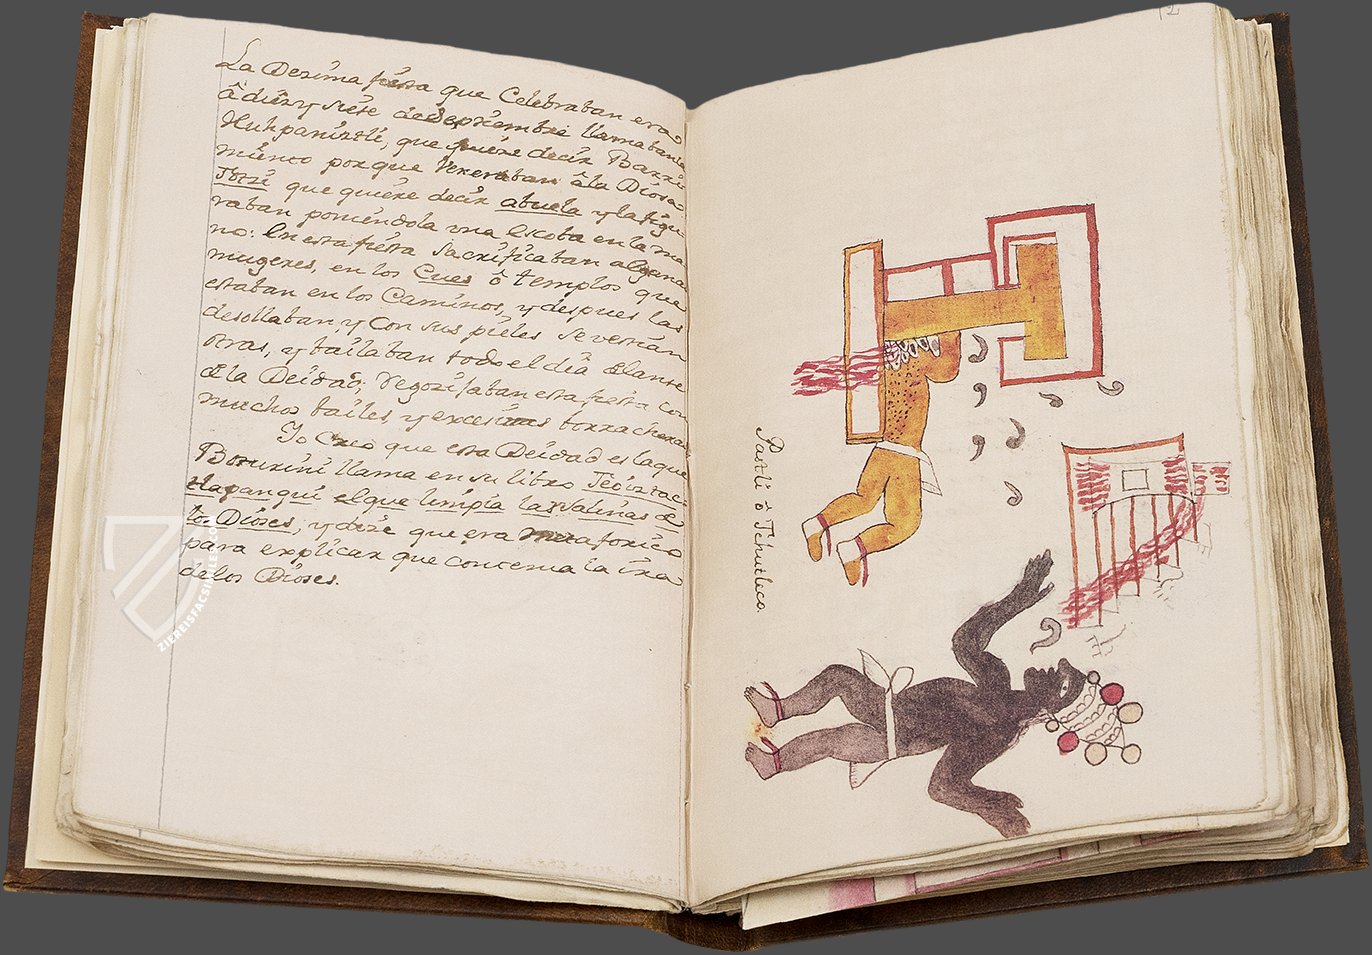 La Dezima fiesta que Celebraban era
â diez y siete de Septiembre llamabanla
Huhpaniztli, que quiere decir Barri
miento porque Veneraban â la Diosa
Tozzi que quiere decir abuela y la figu
raban poniendola una escoba en la ma
no: En esta fiesta Sacrificaban algunas
mugeres, en los Cues ô templos que
estaban en los Caminos, y despues las
desollaban, y Con sus pieles se vestian
otras, y bailaban todo el dia delante
de la Deidad; Regozijaban esta fiesta con
muchos bailes, y excesivas borracheras
Yo Creo que esta Deidad es la que
Boturini llama en su libro
el que limpia las de
los Dioses, y dize que era metaforico
para explicar que contenia la ira
de los Dioses.
Pastli ô Tehutleco.
ZIEREISFACSIMILES.COM